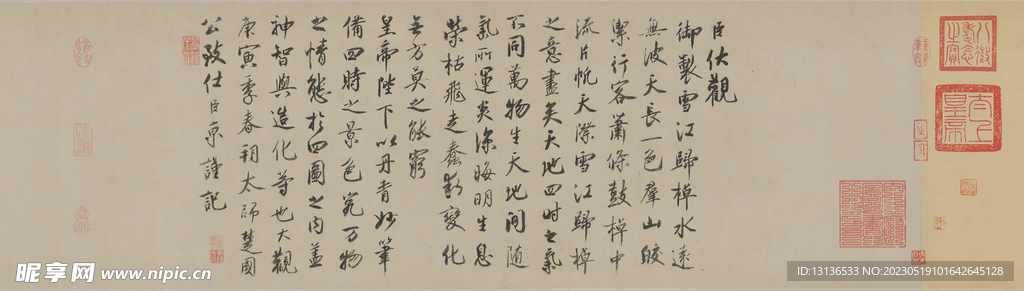 八徵耄念之寶
太上皇帝
臣伏觀
御製雪江歸棹水遠
無波天長一色羣山皎
潔行客蕭條鼓棹中
流片帆天際雪江歸棹
之意盡矣天地四時之氣
不同萬物生天地間隨
氣所運炎涼晦明生息
榮枯飛走蠢動變化
無方莫之能窮
皇帝陛下以丹青妙筆
備四時之景色究万物
之情態於四圖之內蓋
神智與造化等也大觀
庚寅季春朔太師楚國
公致仕臣京謹記
昵享网 www.nipic.cn
ID:13136533 NO:20230519101642645128